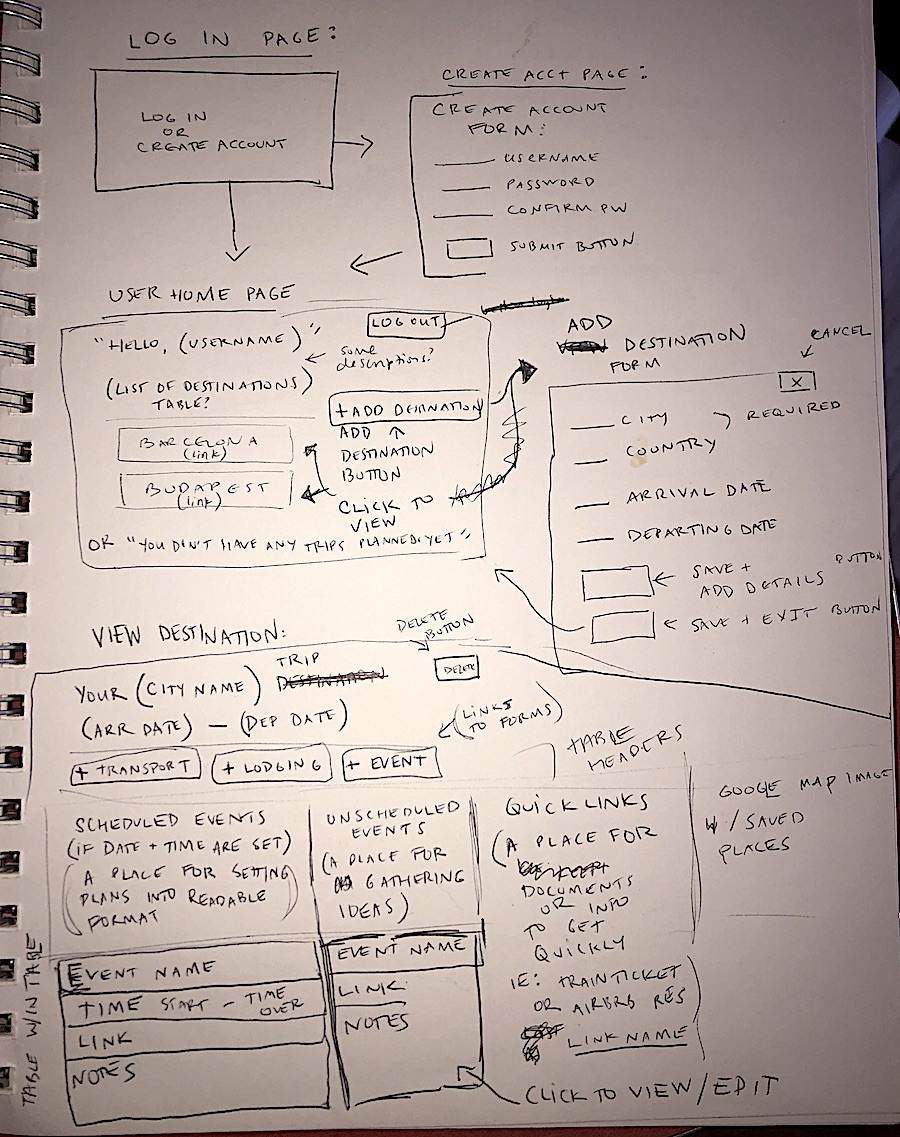 LOG IN PAGE:
LOG IN
OR
CREATE ACCOUNT
CREATE ACCT PAGE:
CREATE ACCOUNT
FORM:
USERNAME
PASSWORD
CONFIRM PW
SUBMIT BUTTON
USER HOME PAGE
LOG OUT
"HELLO, (USERNAME)"
some
descriptions?
(LIST OF DESTINATIONS)
TABLE?
+ ADD DESTINATION
BARCELONA
(link)
BUDAPEST
(link)
ADD
DESTINATION
BUTTON
CLICK TO
VIEW
OR "YOU DIDN'T HAVE ANY TRIPS PLANNED YET"
ADD
DESTINATION
FORM
CANCEL
X
CITY
REQUIRED
COUNTRY
ARRIVAL DATE
DEPARTING DATE
SAVE +
ADD DETAILS BUTTON
SAVE + EXIT BUTTON
VIEW DESTINATION:
DELETE
BUTTON
DELETE
YOUR (CITY NAME) TRIP
(ARR DATE) — (DEP DATE)
(LINKS
TO FORMS)
+ TRANSPORT
+ LODGING
+ EVENT
TABLE
HEADERS
SCHEDULED EVENTS
(IF DATE + TIME ARE SET)
(A PLACE FOR SETTING
PLANS INTO READABLE
FORMAT)
UNSCHEDULED
EVENTS
(A PLACE FOR
GATHERING
IDEAS)
QUICK LINKS
(A PLACE FOR
DOCUMENTS
OR INFO
TO GET
QUICKLY
IE: TRAIN TICKET
OR AIRBNB RES
LINK NAME)
GOOGLE MAP IMAGE
W/SAVED
PLACES
TABLE W/IN TABLE
EVENT NAME
TIME START - TIME
OVER
LINK
NOTES
EVENT NAME
LINK
NOTES
CLICK TO VIEW/EDIT